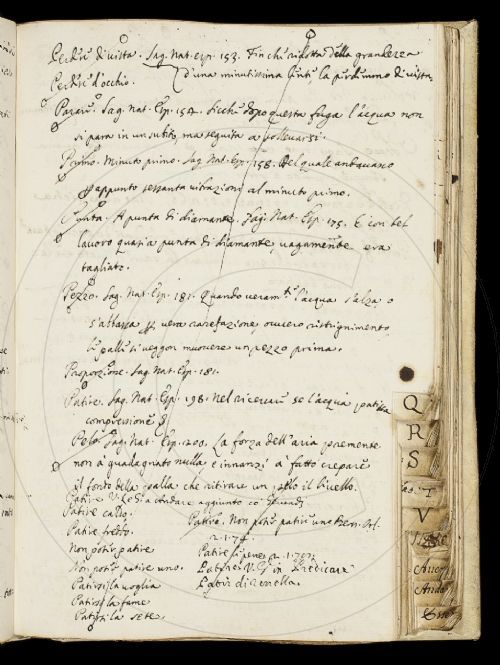 Perder di vista. Sag. Nat. esp. 153. Fin che ridotta della grandezza
d'una minutissima lenti, la perdemmo di vista.
Perder d'occhio.
Parare. Sag. Nat. Esp. 154. Sicchè dopo questa fuga l'acqua non
si para in un subito, ma seguita a sollevarsi.
Primo. Minuto primo. Sag. Nat. Esp. 158. Del quale andavano
appunto sessanta vibrazioni al minuto primo.
Punta. A punta di diamante. Sag. Nat. Esp. 175. E con bel
lavoro quasi a punta di diamante, vagamente era
tagliato.
Pezzo. Sag. Nat. Esp. 181. Quando veram.te l'acqua s'alza, o
s'abbassa p vera rarefazione ovvero ristrignimento,
le palle si veggon muovere un pezzo prima.
Proporzione. Sag. Nat. Esp. 181.
Patire. Sag. Nat. Esp. 198. Nel ricercare se l'acqua patisca
compressione
Pelo. Sag. Nat. Esp. 200. La forza dell'aria premente
non à guadagnato nulla e innanzi à fatto crepare
il fondo della palla che ritirare un pelo il livello.
Patire V. Ledi a andare aggiunto co
Patire caldo.
Patire freddo.
Patire. Non poter patire una Bern. Orl.
2. 1. 74.
Non poter patire
Non poter patire uno.
Patirsi la voglia
Patirsi la fame
Patirsi la sete.
Patire di renella.
Q
R
S
T
V